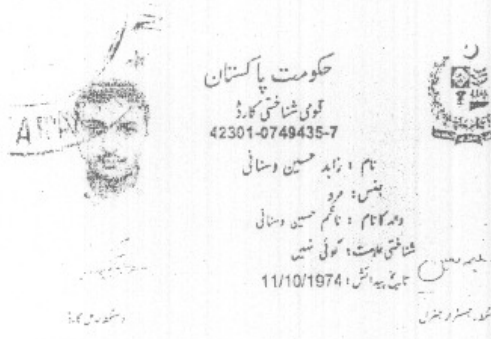 حکومت پاکستان
قومی شناختی کارڈ
42301-0749435-7
نام : زاہد حسین وسنانی
جنس: مرد
والد کا نام : ناظم حسین وسنانی
شناختی علامت: کوئی نہیں
تاریخ پیدائش: 11/10/1974